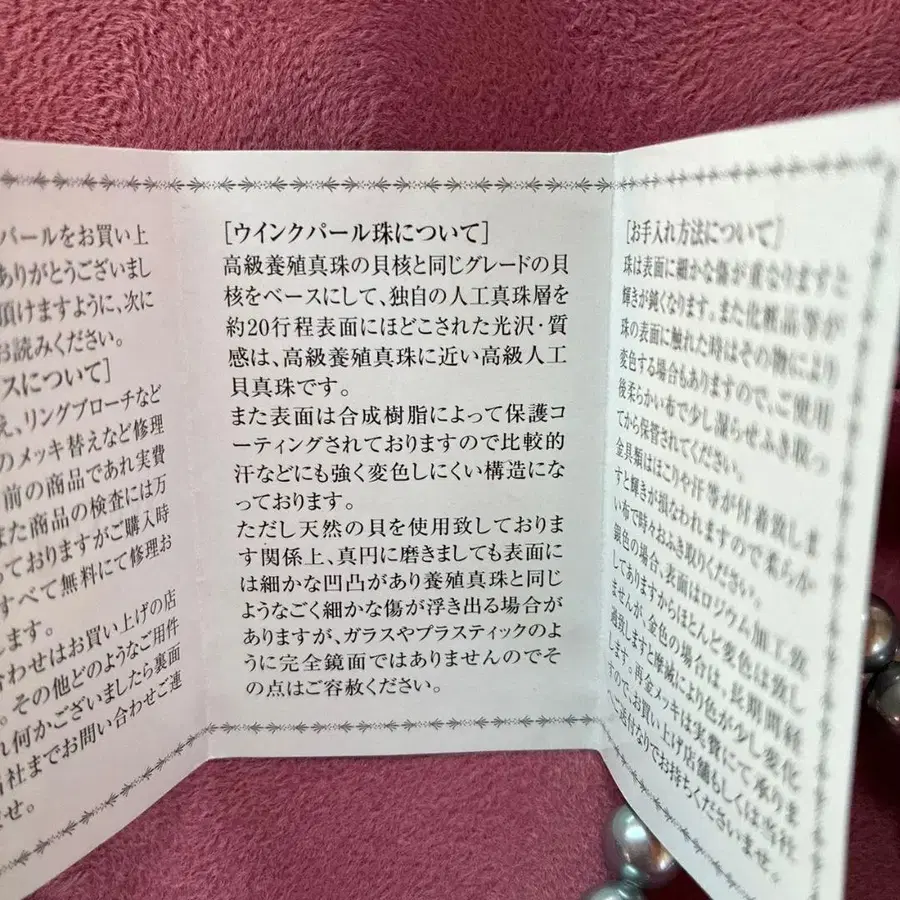 パールをお買い上
ありがとうございまし
頂けますように、次に
お読みください。
スについて]
え、リングブローチなど
のメッキ替えなど修理
前の商品であれ実費
また商品の検査には万
っておりますがご購入時
すべて無料にて修理お
します。
合わせはお買い上げの店
。その他どのようなご用件
れ何かございましたら裏面
当社までお問い合わせご連
せ。
[ウインクパール珠について]
高級養殖真珠の貝核と同じグレードの貝
核をベースにして、独自の人工真珠層を
約20行程表面にほどこされた光沢・質
感は、高級養殖真珠に近い高級人工
貝真珠です。
また表面は合成樹脂によって保護コ
ーティングされておりますので比較的
汗などにも強く変色しにくい構造にな
っております。
ただし天然の貝を使用致しておりま
す関係上、真円に磨きましても表面に
は細かな凹凸があり養殖真珠と同じ
ようなごく細かな傷が浮き出る場合が
ありますが、ガラスやプラスティックのよ
うに完全鏡面ではありませんのでそ
の点はご容赦ください。
[お手入れ方法について]
珠は表面に細かな傷が重なりますと
輝きが鈍くなります。また化粧品等が
珠の表面に触れた時はその物により
変色する場合もありますので、ご使用
後柔らかい布で少し湿らせふき取っ
てから保管されてください。
金具類はほこりや汗等が付着致しま
すと輝きが損なわれますので柔らか
い布で時々おふき取りください。
銀色の場合、表面はロジウム加工致
してありますからほとんど変色は致し
ませんが、金色の場合は、長期間経
過致しますと摩滅により色が少し変化
します。再金メッキは実費にて承りま
すので、お買い上げ店舗もしくは当社
へご送付なりでお持ちくださいませ。